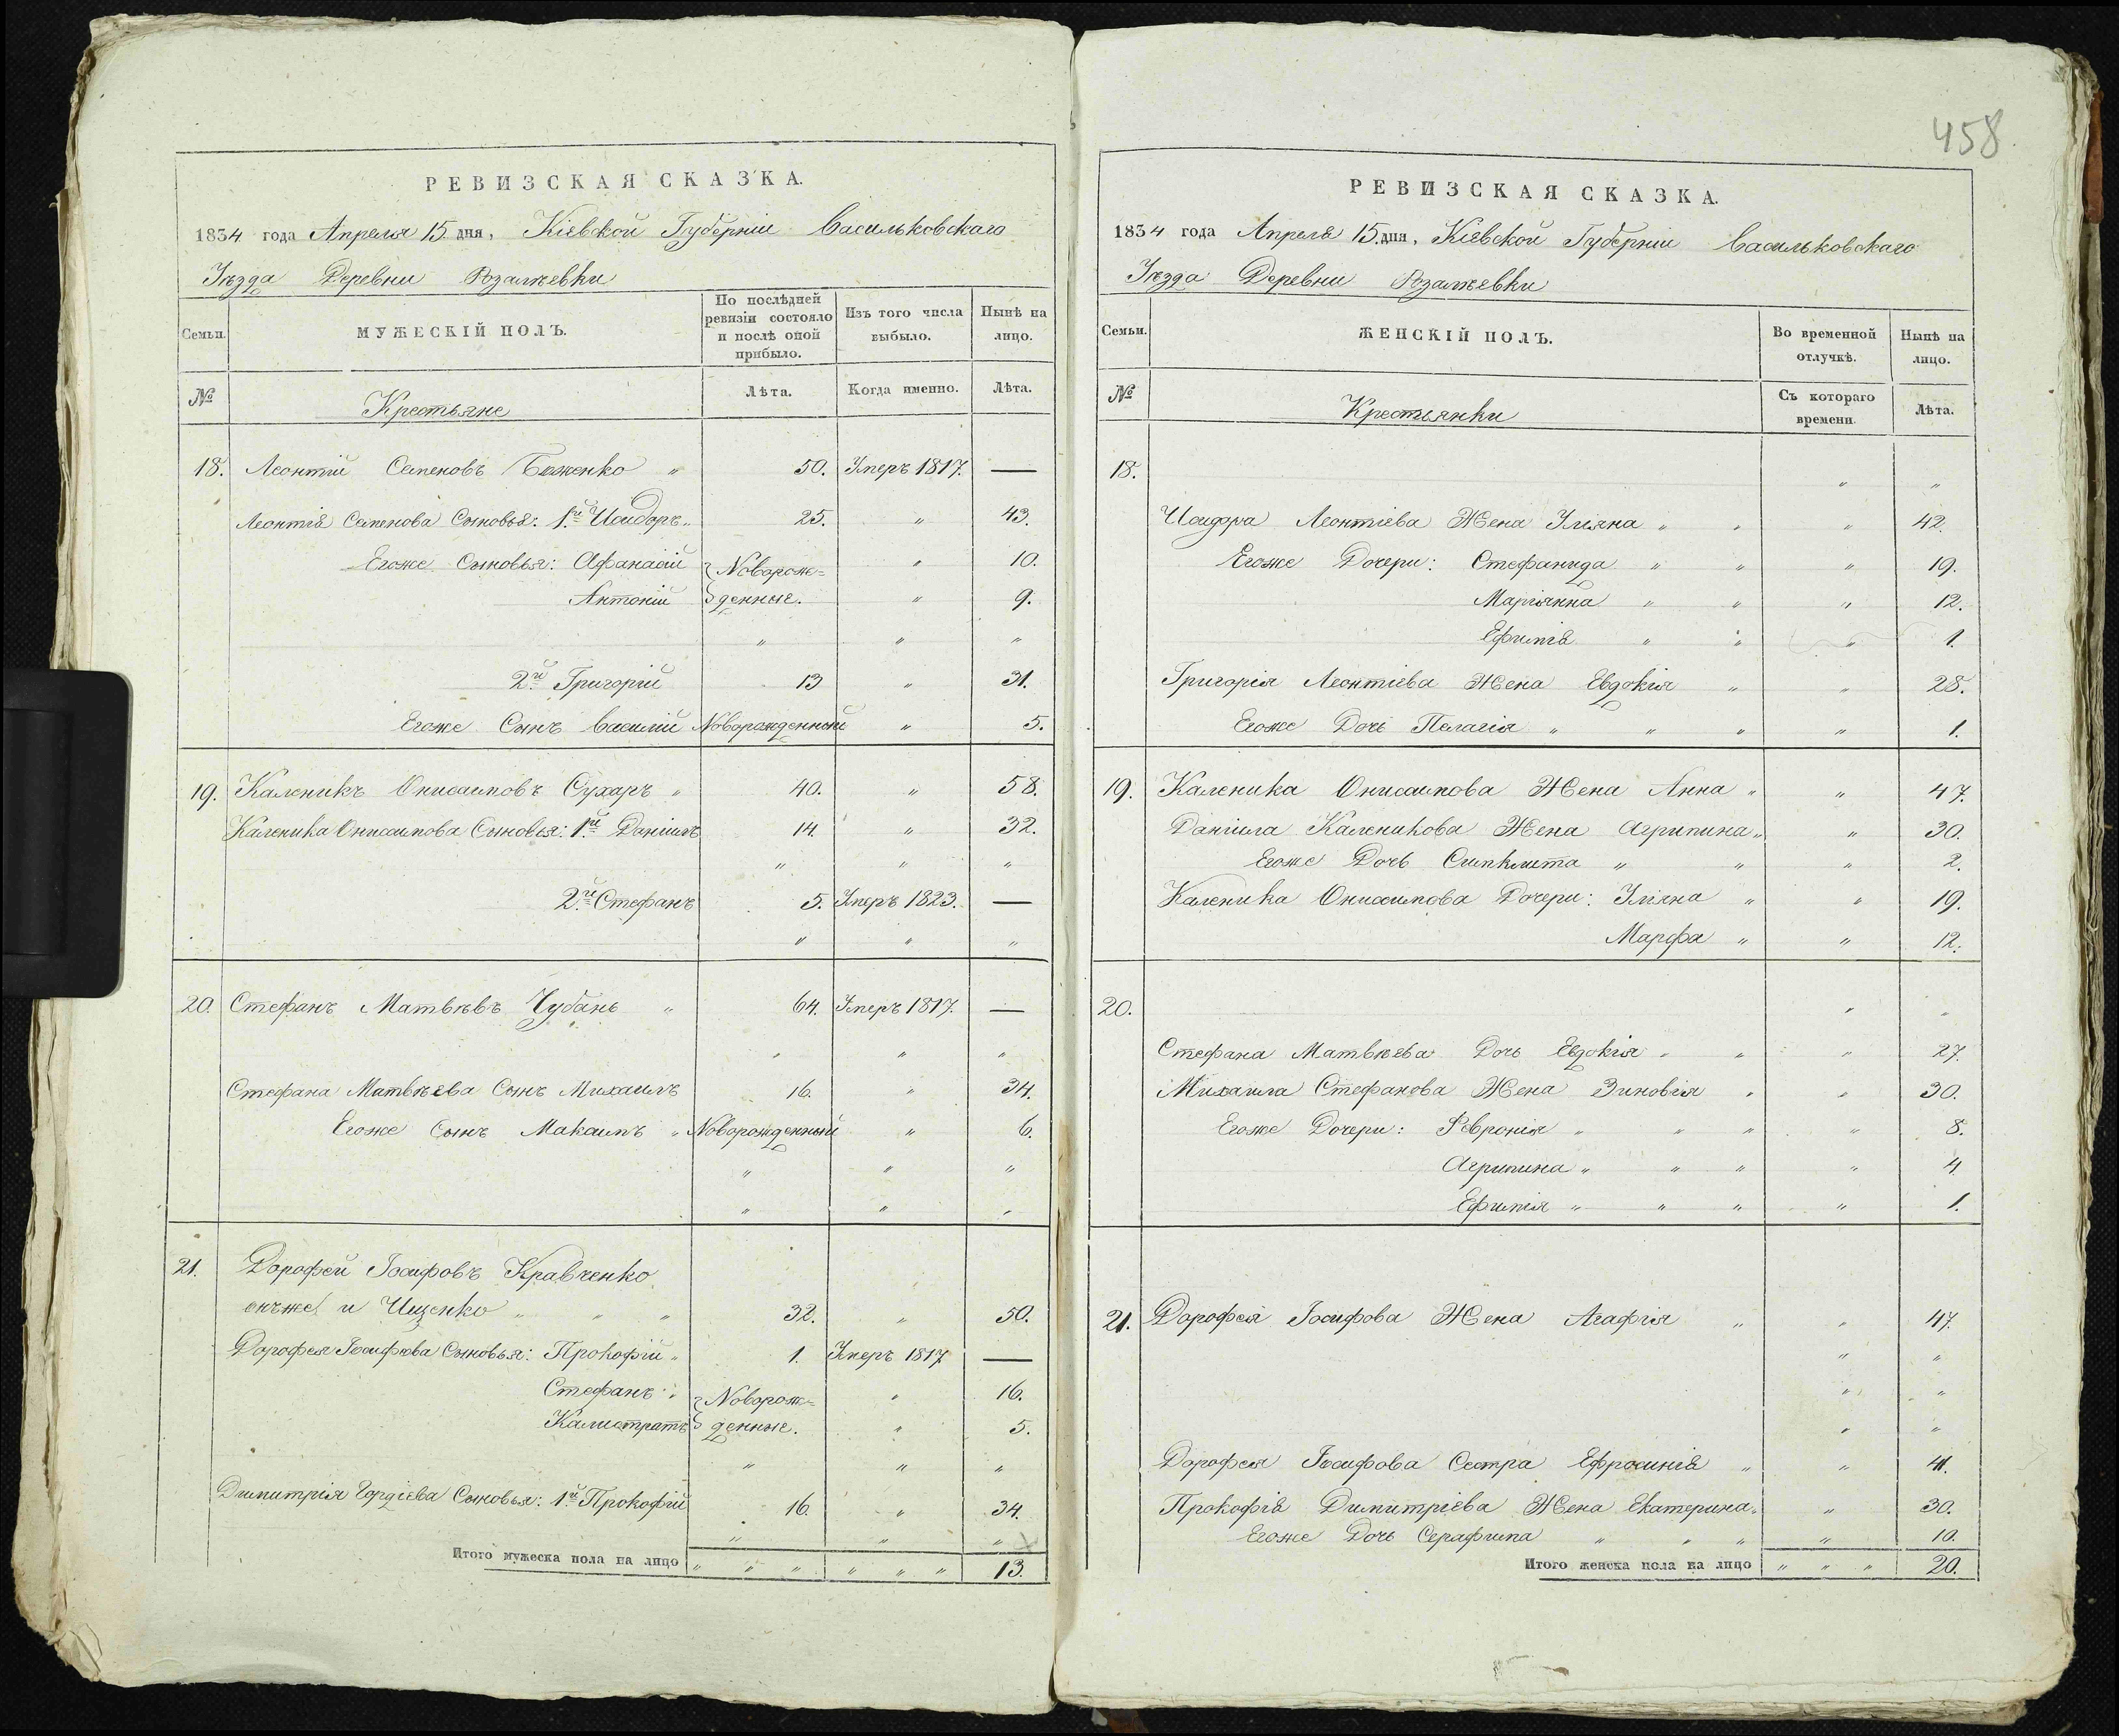 РЕВИЗСКАЯ СКАЗКА.
1834 года Апреля 15. дня, Кіевской Губерніи Васильковскаго
Уѣзда Деревни Розалѣевки
Семьи.
МУЖЕСКІЙ ПОЛЪ.
По послѣдней ревизіи состояло и послѣ оной прибыло.
Изъ того числа выбыло.
Нынѣ на лицо.
№ Крестьяне Лѣта. Когда именно. Лѣта.
18. Леонтій Семеновъ Баженко " 50. Умеръ 1817. —
Леонтія Семенова Сыновья: 1й Исидоръ " 25. " 43.
Егоже Сыновья: Афанасій Новорож= " 10.
Антоній денные. " 9.
" " "
2й Григорій 13 " 31.
Егоже Сынъ Василій Новорожденный " 5.
19. Каленикъ Онисимовъ Сухаръ " 40. " 58.
Каленика Онисимова Сыновья: 1й Даніилъ 14. " 32.
" " "
2й Стефанъ 5. Умеръ 1823. —
" " "
20. Стефанъ Матвѣевъ Чубань " 64. Умеръ 1817. —
" " "
Стефана Матвѣева Сынъ Михаилъ 16. " 34.
Егоже Сынъ Максимъ " Новорожденный " 6.
" " "
" " "
21. Дорофей Іосифовъ Кравченко
онъже и Ищенко " " " 32. " 50.
Дорофея Іосифова Сыновья: Прокофій " 1. Умеръ 1817 —
Стефанъ " Новорож= " 16.
Калистратъ денные. " 5.
" " "
Димитрія Гордіева Сыновья: 1й Прокофій 16. " 34.
" " "
Итого мужеска пола на лицо " " " " " " 13.
458
РЕВИЗСКАЯ СКАЗКА.
1834 года Апреля 15. дня, Кіевской Губерніи Васильковскаго
Уѣзда Деревни Розалѣевки
Семьи.
ЖЕНСКІЙ ПОЛЪ.
Во временной отлучкѣ.
Нынѣ на лицо.
№ Крестьянки Съ котораго времени. Лѣта.
18. " "
Исидора Леонтіева Жена Уліяна " " " 42.
Егоже Дочери: Стефанида " " " 19.
Маріянна " " " 12.
Ефимія " " " 1.
Григорія Леонтіева Жена Евдокія " " 28.
Егоже Дочь Пелагія " " " " 1.
19. Каленика Онисимова Жена Анна " " 47.
Даніила Каленикова Жена Агрипина " " 30.
Егоже Дочь Синклита " " " 2.
Каленика Онисимова Дочери: Уліяна " " 19.
Марфа " " 12.
20. " "
Стефана Матвѣева Дочь Евдокія " " " 27.
Михаила Стефанова Жена Зиновія " " 30.
Егоже Дочери: Февронія " " " " 8.
Агрипина " " " " 4.
Ефимія " " " " 1.
21. Дорофея Іосифова Жена Агафія " " 47.
" "
" "
" "
Дорофея Іосифова Сестра Ефросинія " " 41.
Прокофія Димитріева Жена Екатерина " " 30.
Егоже Дочь Серафима " " " " 10.
Итого женска пола на лицо " " " 20.